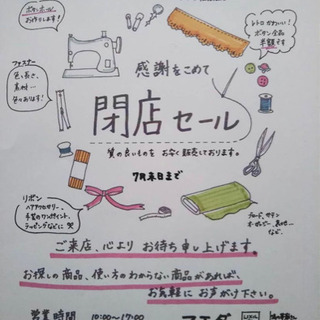 お作りします!
レトロかわいい!
ボタン全品
半額です
感謝をこめて
ファスナー
色、長さ、
素材…
色々あります!
閉店セール
質の良いものを お安く販売しております。
7月末日まで
リボン
ヘアアクセサリー、
手芸のワンポイント、
ラッピングなどに
ご来店、心より お待ち申し上げます。
お探しの商品、使い方のわからない商品があれば、
お気軽に お声がけ下さい。
営業時間 10:00〜17:00